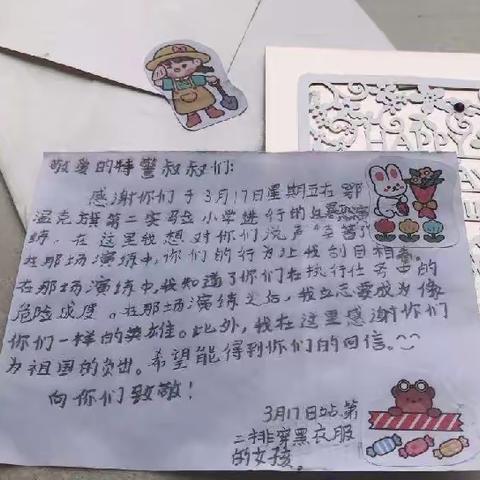 敬爱的特警叔叔们:
感谢你们于3月17日星期五在鄂
温克旗第二实验小学进行的反暴演
练，在这里我想对你们说声“辛苦了”
在那场演练中，你们的行为让我刮目相看。
在那场演练中，我知道了你们在执行任务中的
危险成度。在那场演练之后，我立志要成为像
你们一样的英雄。此外，我在这里感谢你们
为祖国的负出。希望能得到你们的回信。
向你们致敬!
3月17日站第
二排穿黑衣服
的女孩。